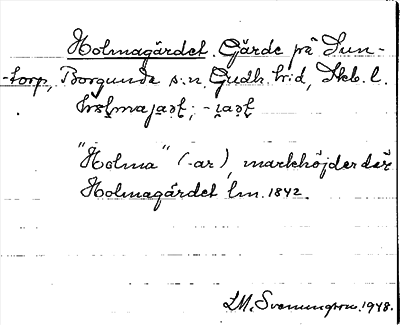 Holmagärdet. Gärde på Sun-
torp, Borgunda s:n, Gudh. h:d, Skb. l.
"Holma" (-ar), markhöjder där
Holmagärdet lm. 1842.
LM. Svenungsson. 1948.